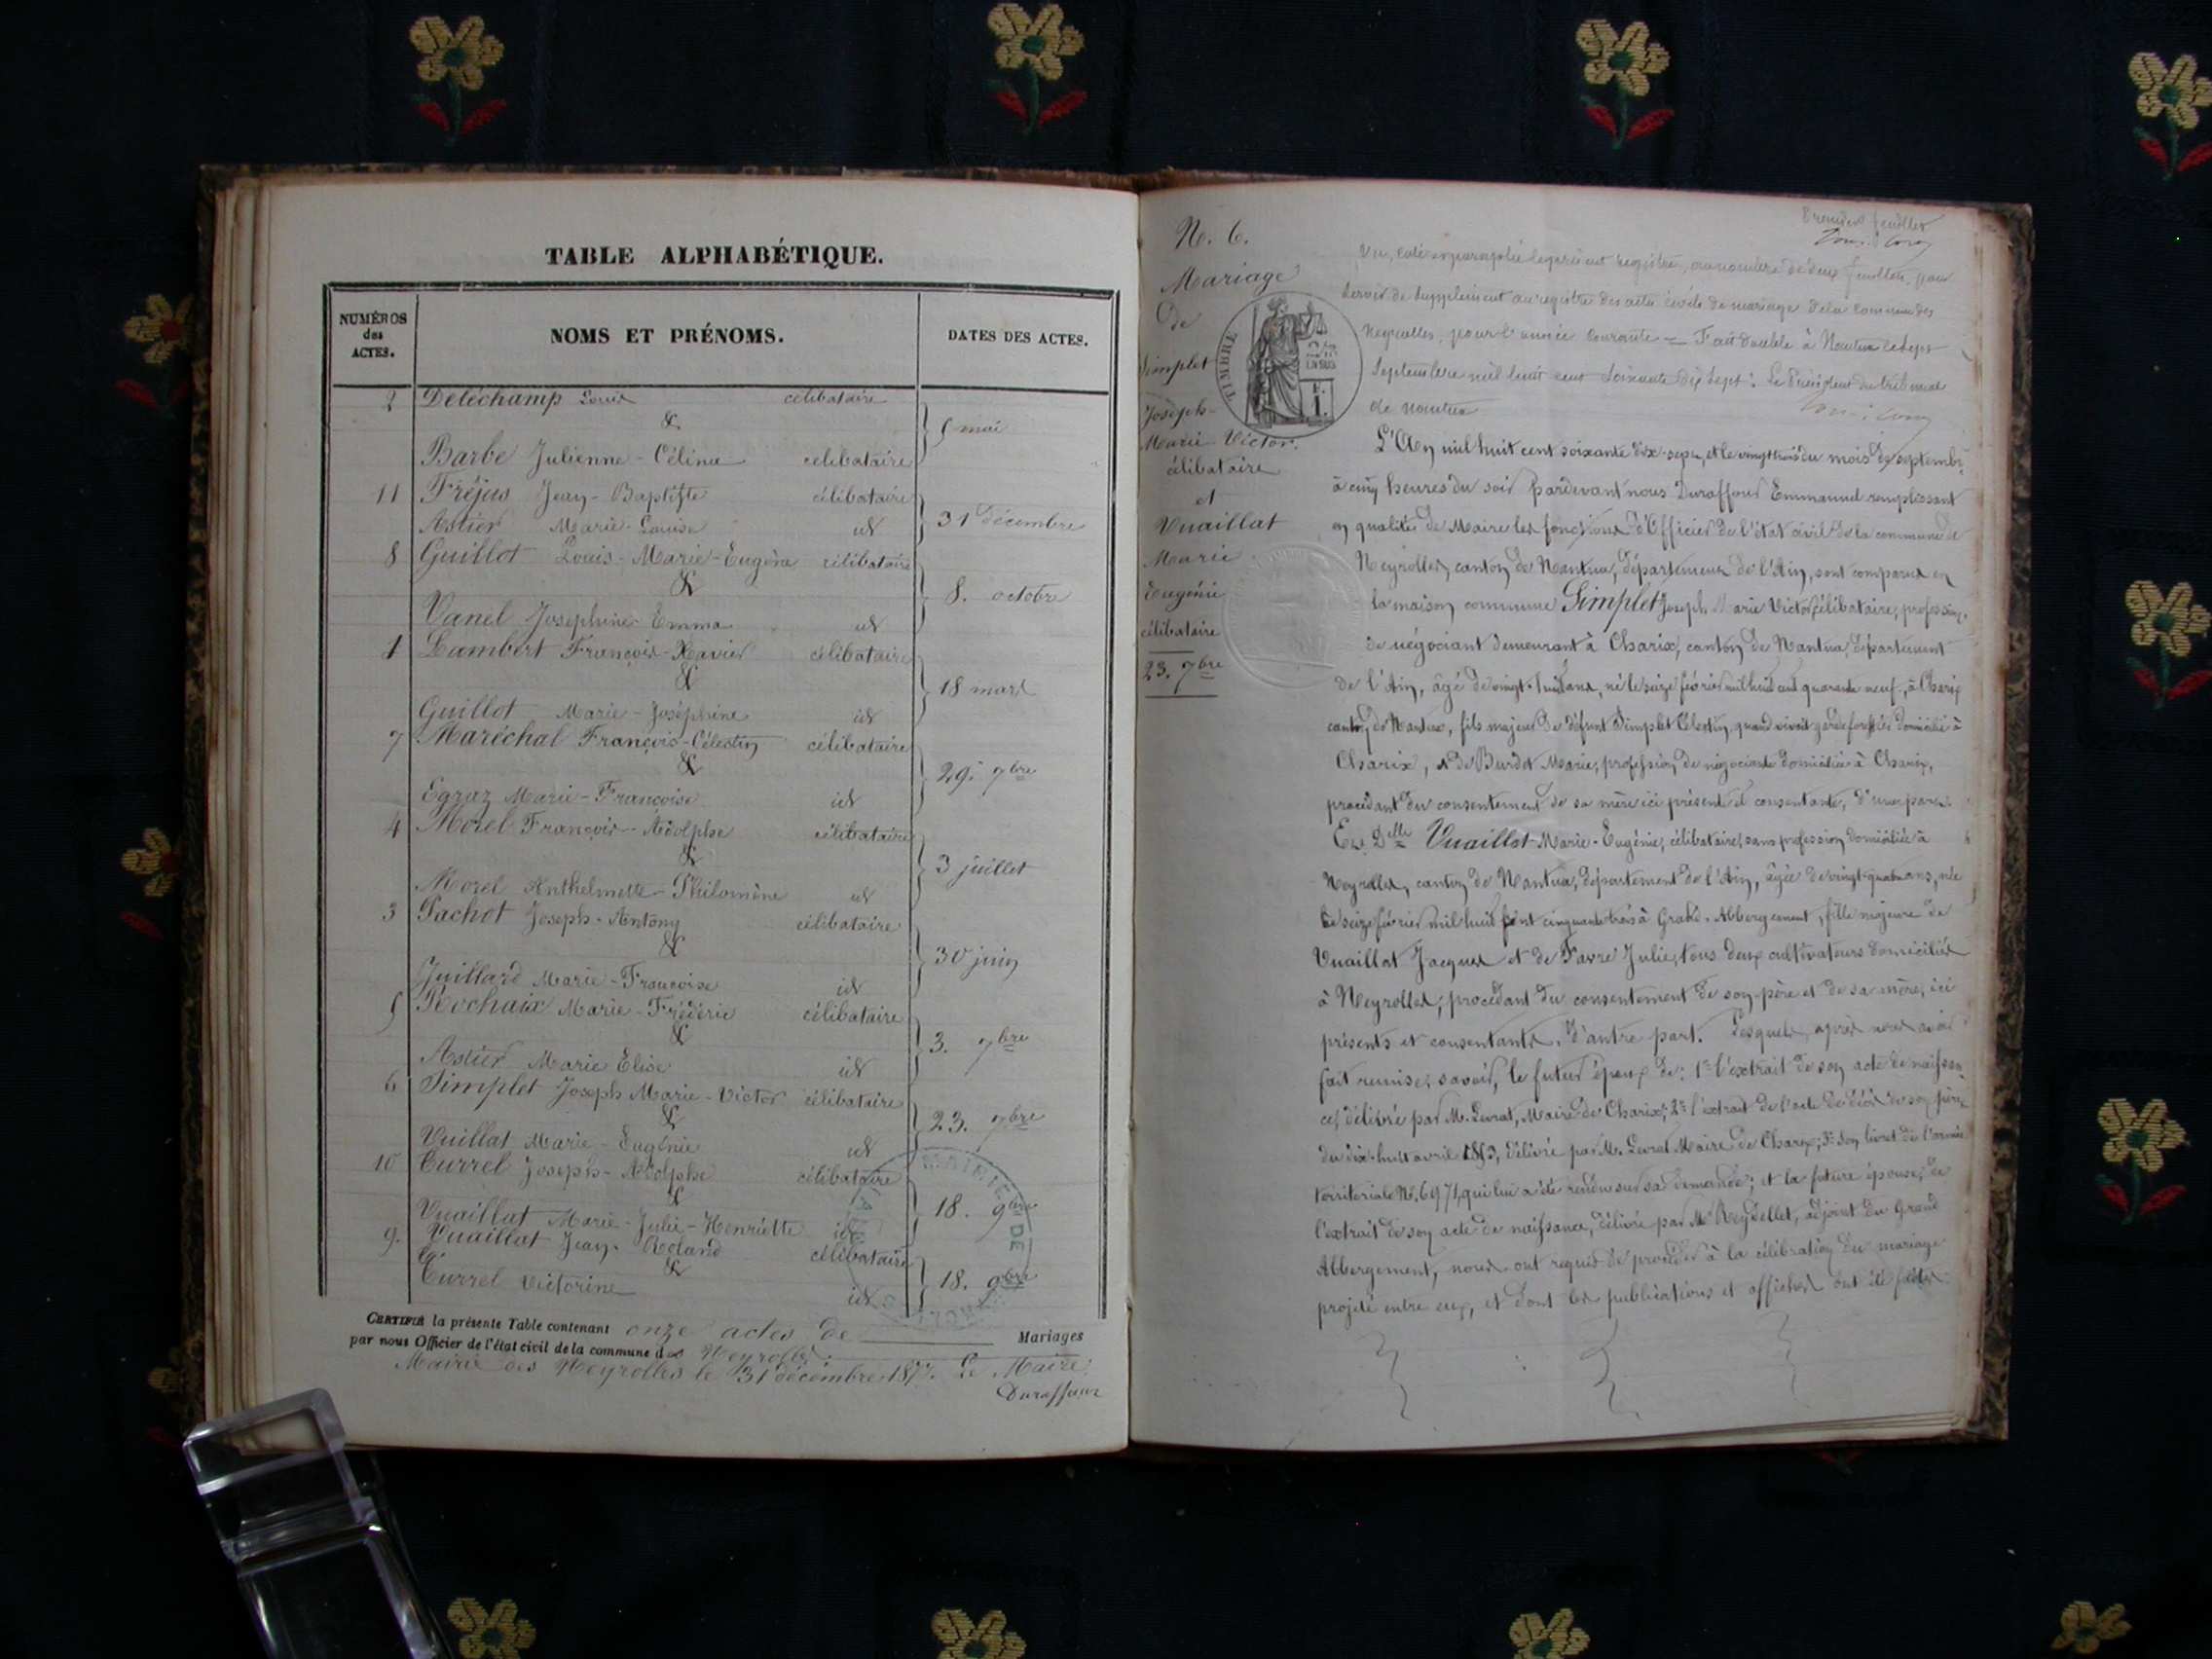 TABLE ALPHABÉTIQUE.
NUMÉROS des ACTES.
NOMS ET PRÉNOMS.
DATES DES ACTES.
2 Deléchamp Louis célibataire
&
5 mai
Barbe Julienne-Célina célibataire
11 Fréjus Jean-Baptiste célibataire
Astier Marie-Louise id
31 décembre
8 Guillot Louis-Marie-Eugène célibataire
&
8. octobre
Vanel Josephine-Emma id
1 Lambert François-Xavier célibataire
&
18 mars
Guillot Marie-Joséphine id
7 Maréchal François-Célestin célibataire
&
29. 7bre
Egraz Marie-Françoise id
4 Morel François-Adolphe célibataire
&
3 juillet
Morel Anthelmette-Philomène id
3 Pachot Joseph-Antony célibataire
&
30 juin
Juillard Marie-Françoise id
5 Rochaix Marie-Frédéric célibataire
&
3. 7bre
Astier Marie Elise id
6 Simplet Joseph Marie-Victor célibataire
&
23. 7bre
Vuillat Marie-Eugénie id
10 Currel Joseph-Adolphe célibataire
&
18. 9bre
Vuaillat Marie-Julie-Henriette id
9. Vuaillat Jean-Roland célibataire
&
18. 9bre
Currel Victorine id
MAIRIE DE
CERTIFIÉ la présente Table contenant onze actes de Mariages
par nous Officier de l'état civil de la commune des Neyrolles.
Mairie des Neyrolles le 31 décembre 1877. Le Maire
Duraffour
N. 6.
Mariage
de
Simplet
Joseph-
Marie Victor.
célibataire
et
Vuaillat
Marie
Eugénie
célibataire
23. 7bre
TIMBRE
Premier feuillet
Vu, coté et paraphé le présent registre, au nombre de deux feuillets, pour
servir de supplément au registre des actes civils de mariage de la commune des
Neyrolles, pour l'année courante = Fait double à Nantua le sept
Septembre mil huit cent soixante dix sept. Le Président du tribunal
de Nantua
L'An mil huit cent soixante dix-sept, et le vingt trois du mois de septembre
à cinq heures du soir Pardevant nous Duraffour Emmanuel remplissant
en qualité de Maire les fonctions d'Officier de l'état civil de la commune de
Neyrolles, canton de Nantua, département de l'Ain, sont comparus en
la maison commune Simplet Joseph Marie Victor célibataire, profession
de négociant demeurant à Charix, canton de Nantua, département
de l'Ain, âgé de vingt-huit ans, né le seize février mil huit cent quarante neuf, à Charix
canton de Nantua, fils majeur de défunt Simplet Célestin, quand vivait garde forestier domicilié à
Charix, et de Burdet Marie, profession de négociante domiciliée à Charix,
procédant du consentement de sa mère ici présente et consentante, d'une part.
Et Delle Vuaillat Marie-Eugénie, célibataire, sans profession domiciliée à
Neyrolles, canton de Nantua, département de l'Ain, âgée de vingt-quatre ans, née
le seize février mil huit cent cinquante trois à Grand-Abbergement, fille majeure de
Vuaillat Jacques et de Favre Julie, tous deux cultivateurs domiciliés
à Neyrolles, procédant du consentement de son père et de sa mère, ici
présents et consentants, d'autre part. Lesquels, après nous avoir
fait remise; savoir, le futur époux de: 1° l'extrait de son acte de naissan
ce, délivré par M. Levrat, Maire de Charix; 2° l'extrait de l'acte de décès de son père,
du dix-huit avril 1853, délivré par M. Levrat Maire de Charix; 3° son livret de l'armée
territoriale N° 6971, qui lui a été rendu sur sa demande; et la future épouse, de
l'extrait de son acte de naissance, délivré par Mr Reydellet, adjoint du Grand
Abbergement, nous ont requis de procéder à la célébration du mariage
projeté entre eux, et dont les publications et affiches ont été faites